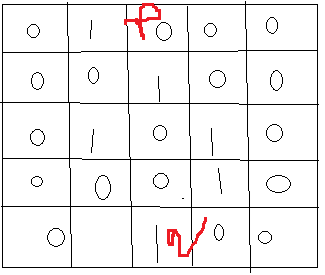 0 1 0 0 0
0 0 1 0 0
0 1 0 1 0
0 0 0 1 0
0 1 0 0